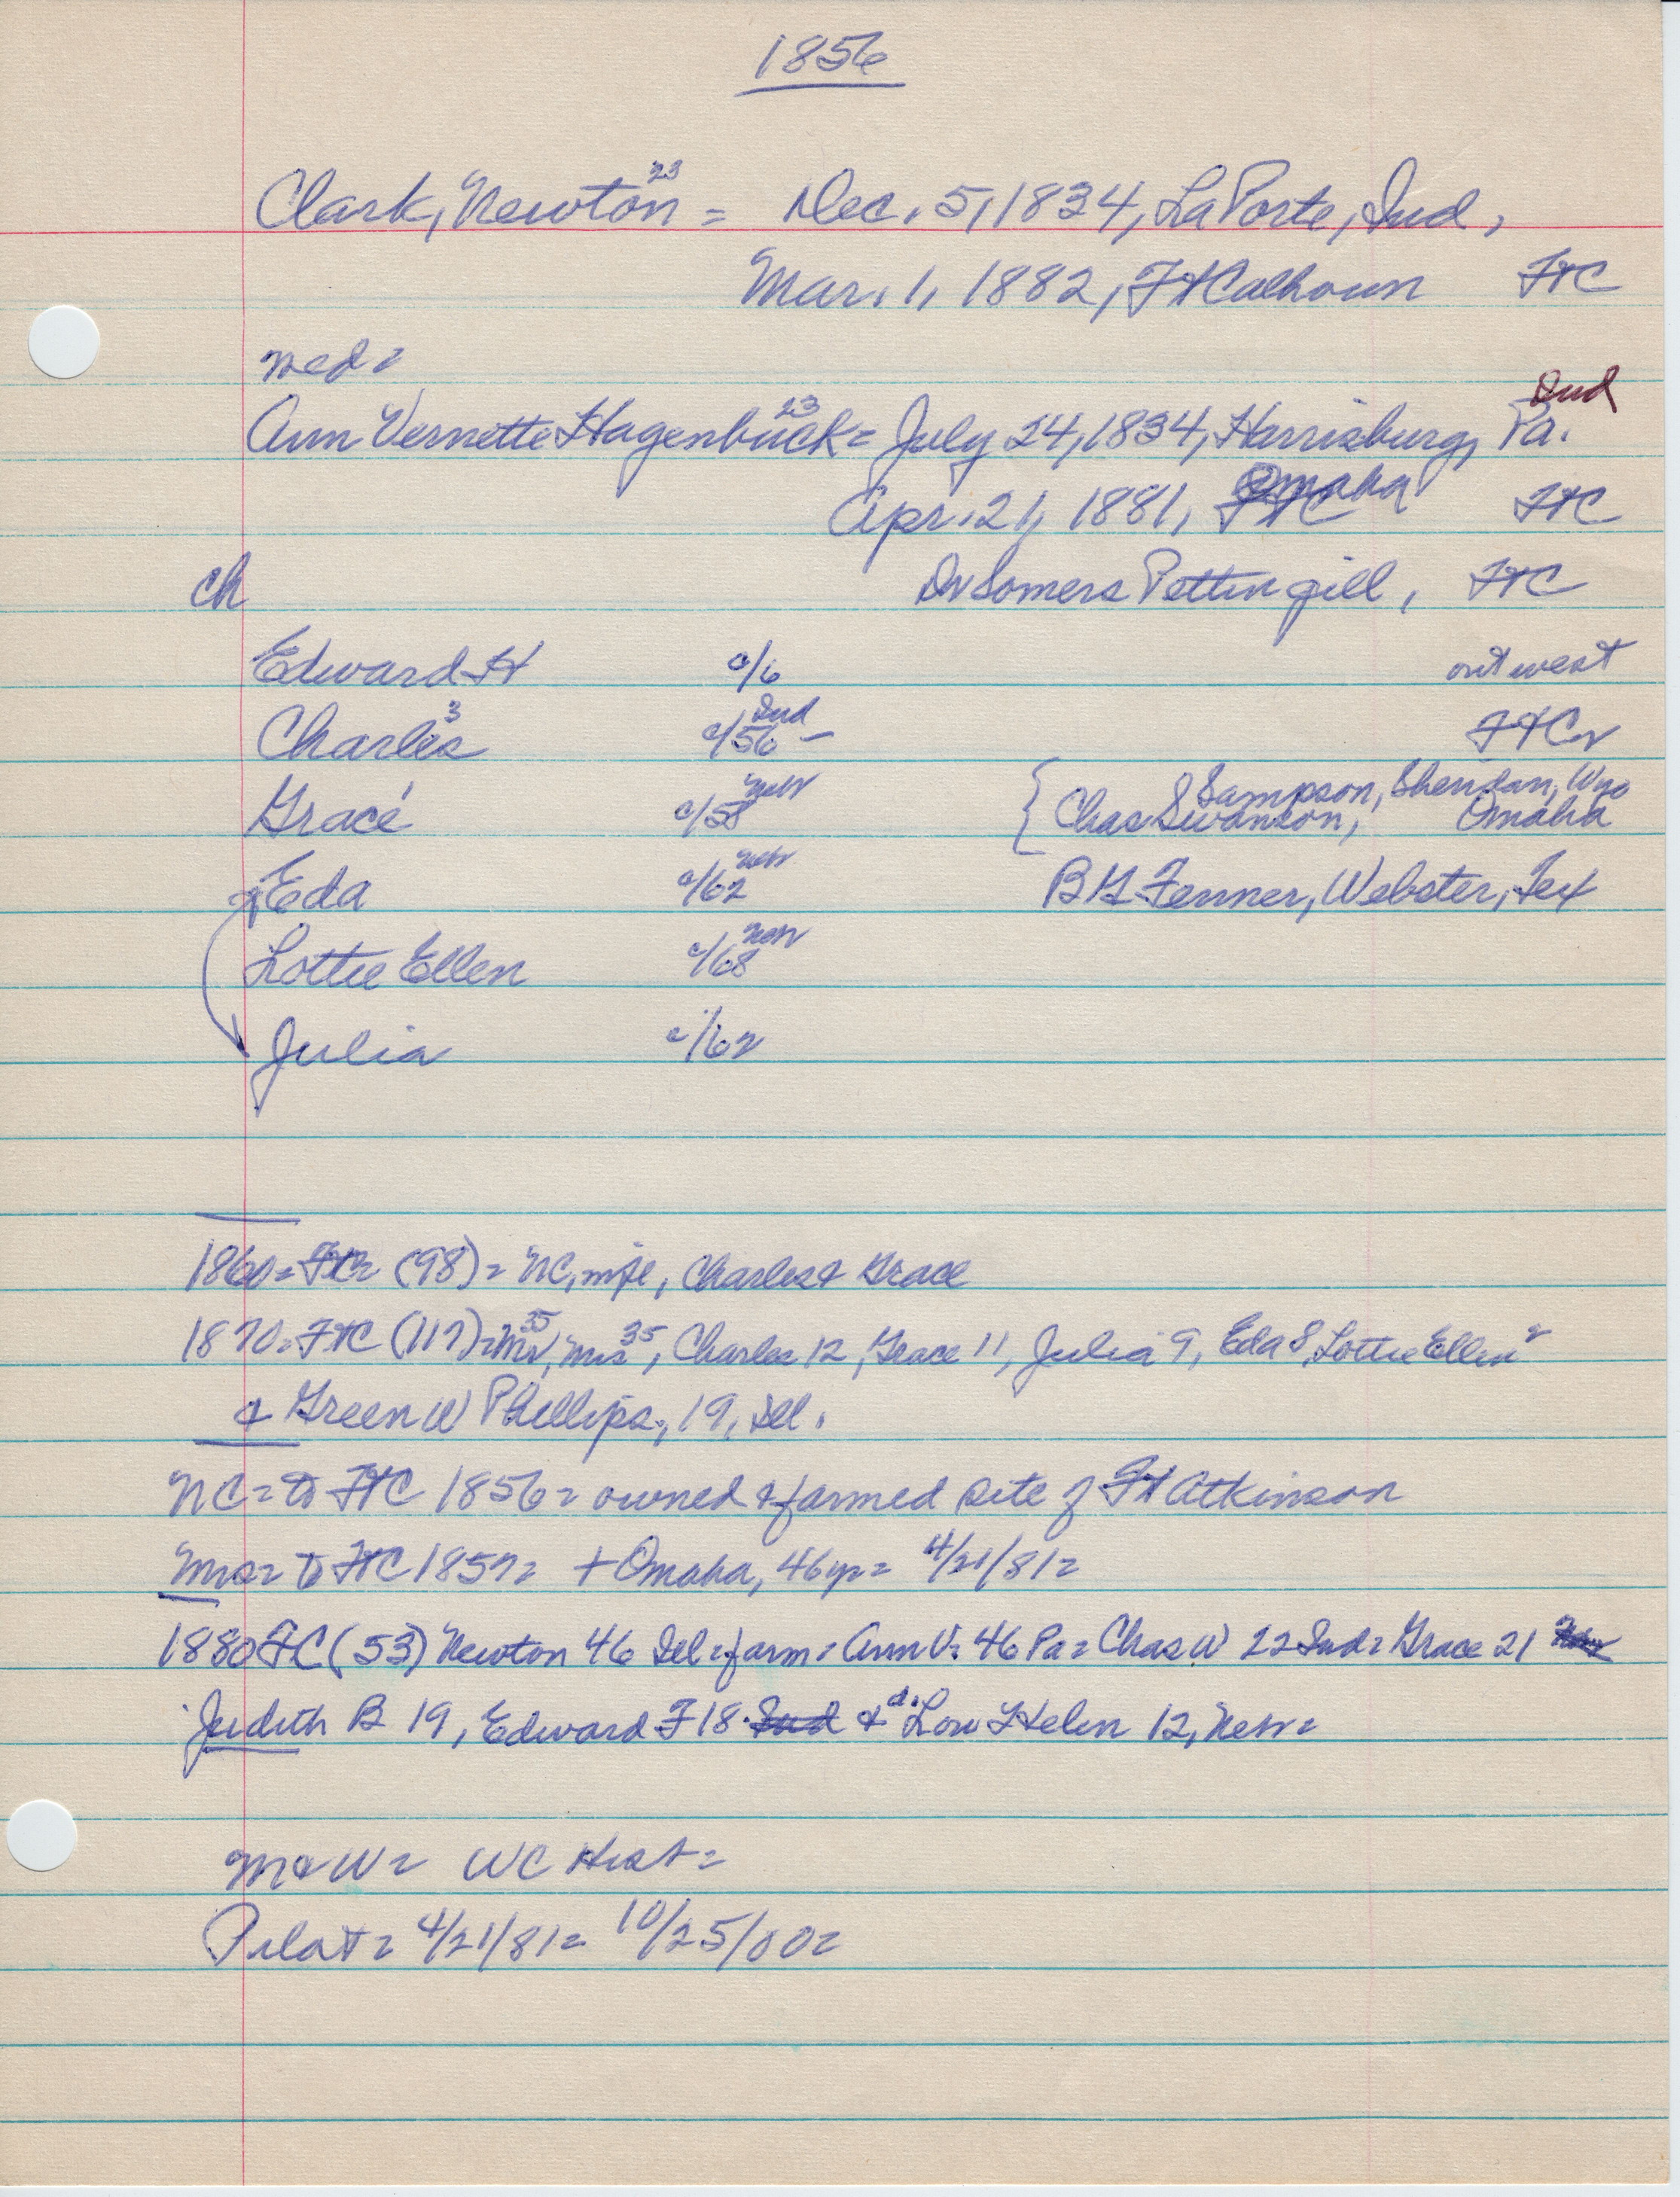 1856
Clark, Newton 23 = Dec. 5, 1834, LaPorte, Ind,
Mar. 1, 1882, Ft Calhoun FtC
med =
Ind
Ann Vernette Hagenbuck 23 = July 24, 1834, Harrisburg, Pa.
Apr. 21, 1881, Omaha FtC
ch Dr Somers Pettingill, FtC
Edward H c/6 out west
Charles 3 c/56 Ind – FtC
Grace 1 c/58 Nebr { S Sampson, Sheridan, Wyo
Chas Swanson, Omaha
Eda c/62 Nebr B G Fenner, Webster, Tex
Lottie Ellen c/68 Nebr
Julia c/62
1860 = FtC (98) = NC, wife, Charles & Grace
1870 = FtC (117) = Mr 35, Mrs 35, Charles 12, Grace 11, Julia 9, Eda 8, Lottie Ellen 2
& Green W Phillips, 19, Ill.
NC = to FtC 1856 = owned & farmed site of Ft Atkinson
Mrs = to FtC 1857 = + Omaha, 46 yr = 4/21/81 =
1880 FC (53) Newton 46 Del = farm = Ann V = 46 Pa = Chas W 22 Ind = Grace 21
Judith B 19, Edward F 18 Ind & d. Lou Helen 12, Nebr =
M & W = WC Hist =
Pilot = 4/21/81 = 10/25/00 =